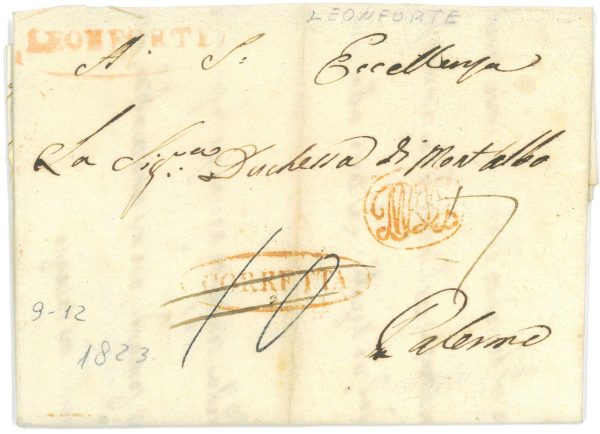 LEONFORTE
LEONFORTE
A S: Eccellenza
La Sig.ra Duchessa di Montalbo
CORRETTA
10
7
9-12
1823
Palermo